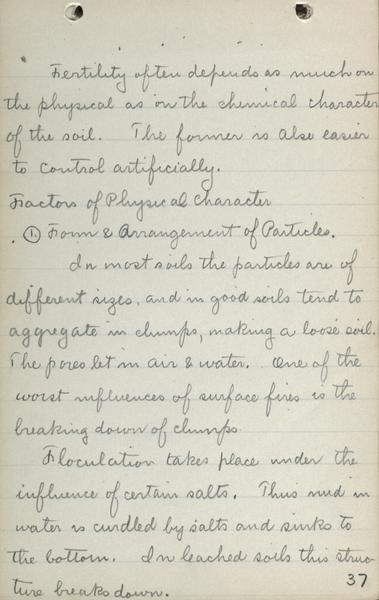 Fertility often depends as much on
the physical as on the chemical character
of the soil. The former is also easier
to control artificially.
Factors of Physical Character
① Form & Arrangement of Particles.
In most soils the particles are of
different sizes, and in good soils tend to
aggregate in clumps, making a loose soil.
The pores let in air & water. One of the
worst influences of surface fires is the
breaking down of clumps.
Floculation takes place under the
influence of certain salts. Thus mud in
water is curdled by salts and sinks to
the bottom. In leached soils this struc-
ture breaks down.
37